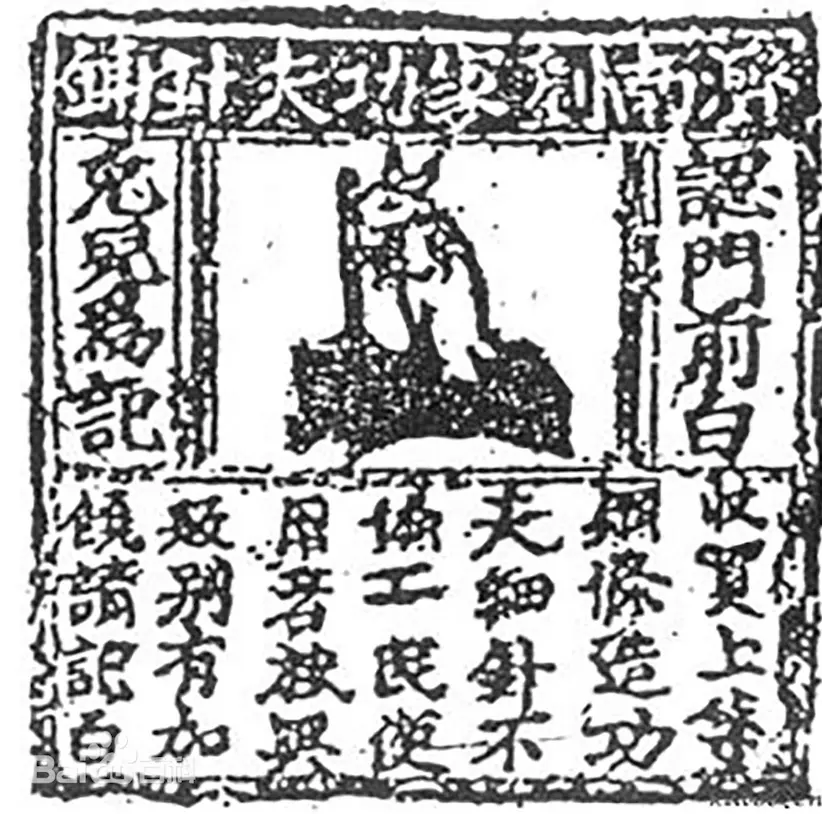 濟南劉家功夫針鋪
認門前白
兔兒爲記
收買上等
鋼條造功
夫細針不
偷工民便
用若被興
販別有加
饒請記白
Bai百科